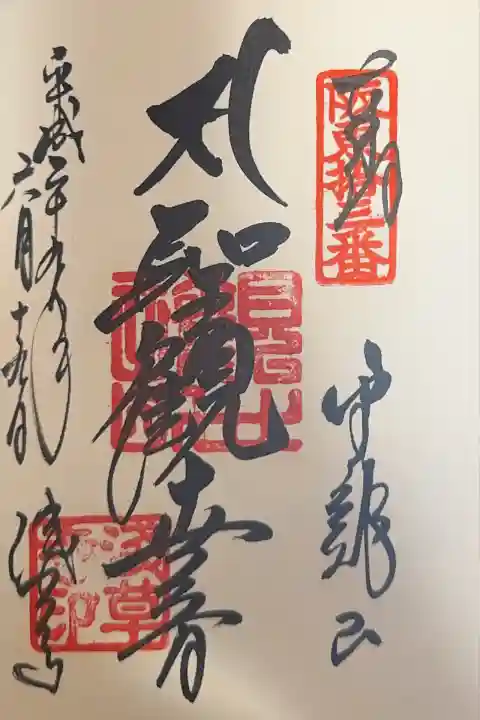 奉拝
坂東拾三番
金龍山
聖観世音
平成二十九年
六月十九日
浅草寺
浅草寺印